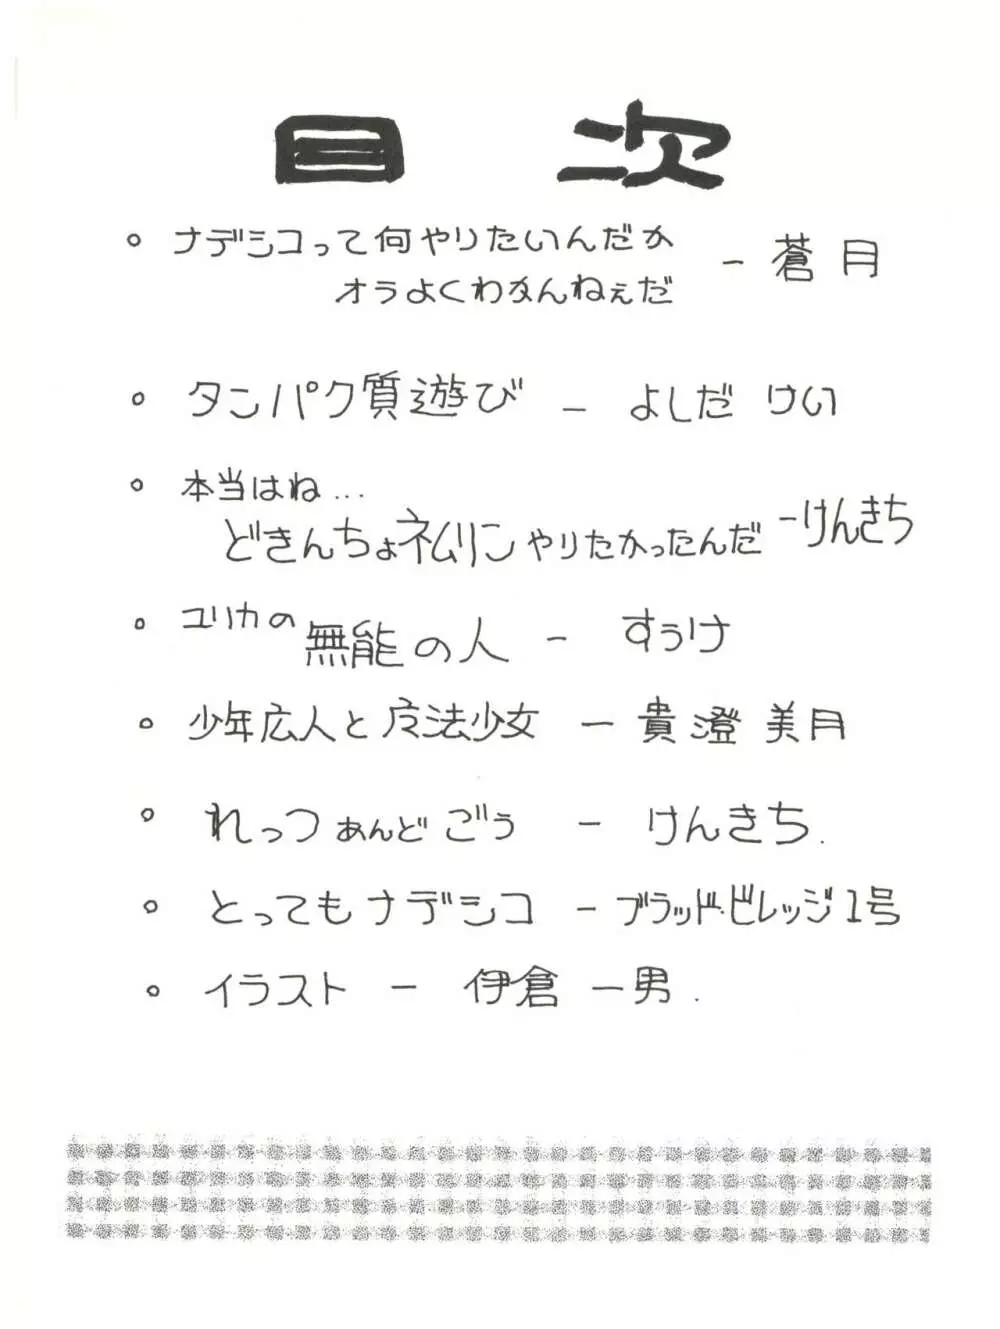 目次
。ナデシコって何やりたいんだか
オラよくわかんねぇだ - 蒼月
。タンパク質遊び - よしだ けい
。本当はね...
どきんちょネムリンやりたかったんだ - けんきち
。ユリカの無能の人 - すぅけ
。少年広人と魔法少女 - 貴澄美月
。れっつぁんどごう - けんきち.
。とってもナデシコ - ブラッド・ビレッジ1号
。イラスト - 伊倉一男.